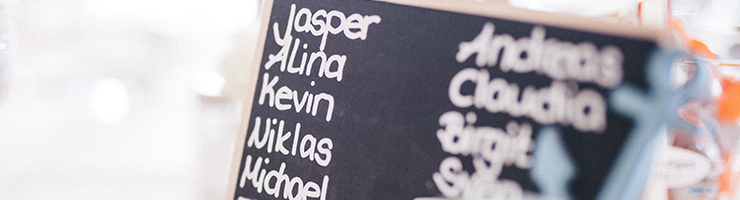 Jasper
Alina
Kevin
Niklas
Michael
Andreas
Claudia
Birgit
Sven